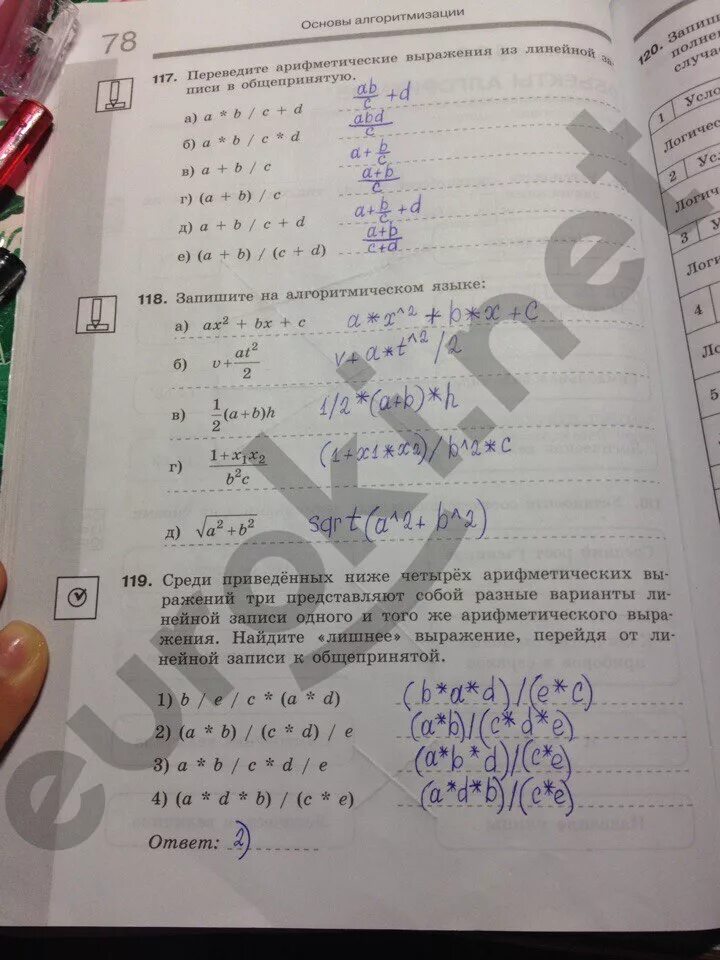 Основы алгоритмизации
78
117. Переведите арифметические выражения из линейной за-
писи в общепринятую.
а) a * b / c + d ab/c + d
б) a * b / c * d abd/c
в) a + b / c a + b/c
г) (a + b) / c a+b/c
д) a + b / c + d a + b/c + d
е) (a + b) / (c + d) a+b/c+d
118. Запишите на алгоритмическом языке:
а) ax² + bx + c a*x^2 + b*x + c
б) v + at²/2 v + a*t^2/2
в) 1/2(a + b)h 1/2*(a+b)*h
г) 1 + x₁x₂/b²c (1+x1*x2)/b^2*c
д) √a² + b² sqrt(a^2 + b^2)
119. Среди приведённых ниже четырёх арифметических вы-
ражений три представляют собой разные варианты ли-
нейной записи одного и того же арифметического выра-
жения. Найдите «лишнее» выражение, перейдя от ли-
нейной записи к общепринятой.
1) b / e / c * (a * d) (b*a*d)/(e*c)
2) (a * b) / (c * d) / e (a*b)/(c*d*e)
3) a * b / c * d / e (a*b*d)/(c*e)
4) (a * d * b) / (c * e) (a*d*b)/(c*e)
Ответ: 2)
120. Запиши
полнен
случа
1 Усло
Логичес
2 Усл
Логич
3 У
Логи
4
Ло
5
euroki.net